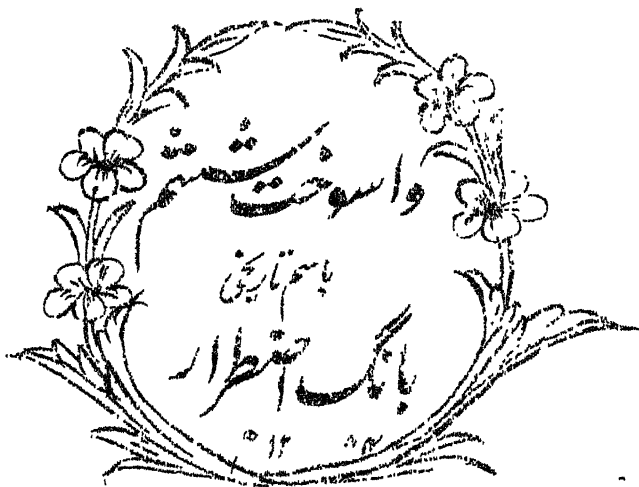 واسوخت ششم
باسم تاریخی
بانگ اضطرار
ھ ۱۲ ۸۴